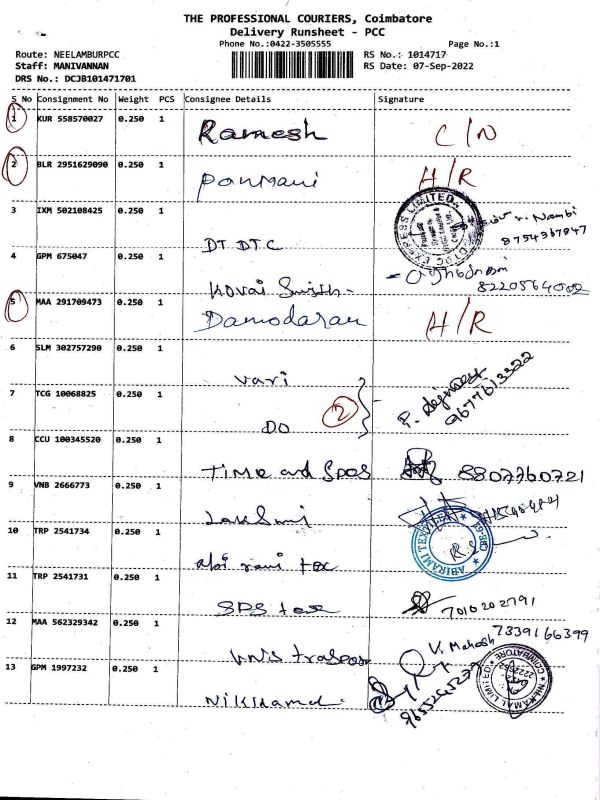 THE PROFESSIONAL COURIERS, Coimbatore
Delivery Runsheet - PCC
Phone No.:0422-3505555
Page No.:1
Route: NEELAMBURPCC
RS No.: 1014717
Staff: MANIVANNAN
RS Date: 07-Sep-2022
DRS No.: DCJB101471701
S No Consignment No Weight PCS Consignee Details Signature
1 KUR 558570027 0.250 1 Ramesh C/N
2 BLR 2951629090 0.250 1 Ponmani H/R
3 IXM 502108425 0.250 1 DTDTC
DTDC EXPRESS LIMITED
Nambi
8754367847
4 GPM 675047 0.250 1 Kovai Smith
8220564002
5 MAA 291709473 0.250 1 Damodaran H/R
6 SLM 302757290 0.250 1 Vari
7 TCG 10068825 0.250 1 DO 2
9677613322
8 CCU 100345520 0.250 1 Time and Spos 8807760721
9 VNB 2666773 0.250 1 Lakshmi
10 TRP 2541734 0.250 1 Abi rami tex
ABIRAMI TEX CBE-62
11 TRP 2541731 0.250 1 SPS tex
7010202791
12 MAA 562329342 0.250 1 VNS
V. Mahesh 7339166399
13 GPM 1997232 0.250 1 Nilkamal
NILKAMAL LIMITED COIMBATORE